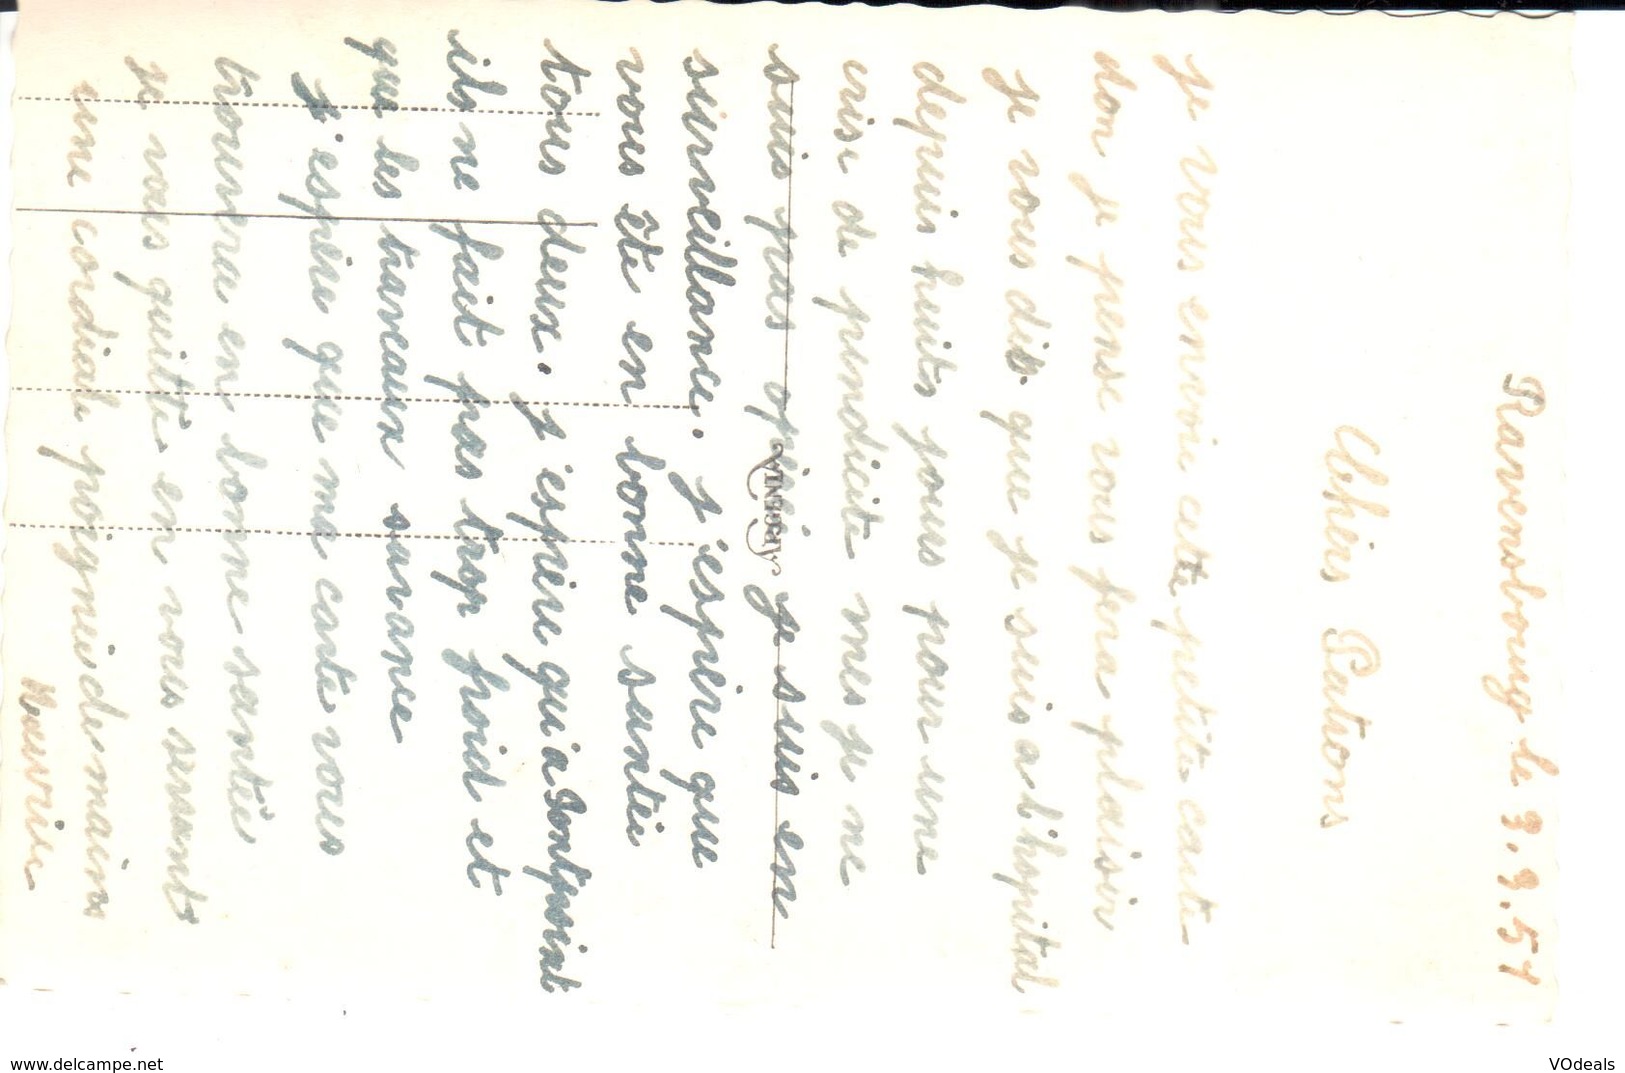 Ravensbourg le 3.3.51
Chèrs Patrons
je vous envoie cete petite carte
don je pense vous fera plaisir
je vous dis que je suis a l'hopital
depuis huits jours pour une
crise de pendicite mes je ne
suis pas opéré je suis en
surveillance. j'espère que
vous ête en bonne santée
tous deux. j'espère qu'a Pontpoint
ils ne fait pas trop froid et
que les travaux savance
j'espère que ma carte vous
trouvera en bonne santée
je vous quitte en vous serrant
une cordiale poignéis de mains
Maurice
www.delcampe.net
VOdeals